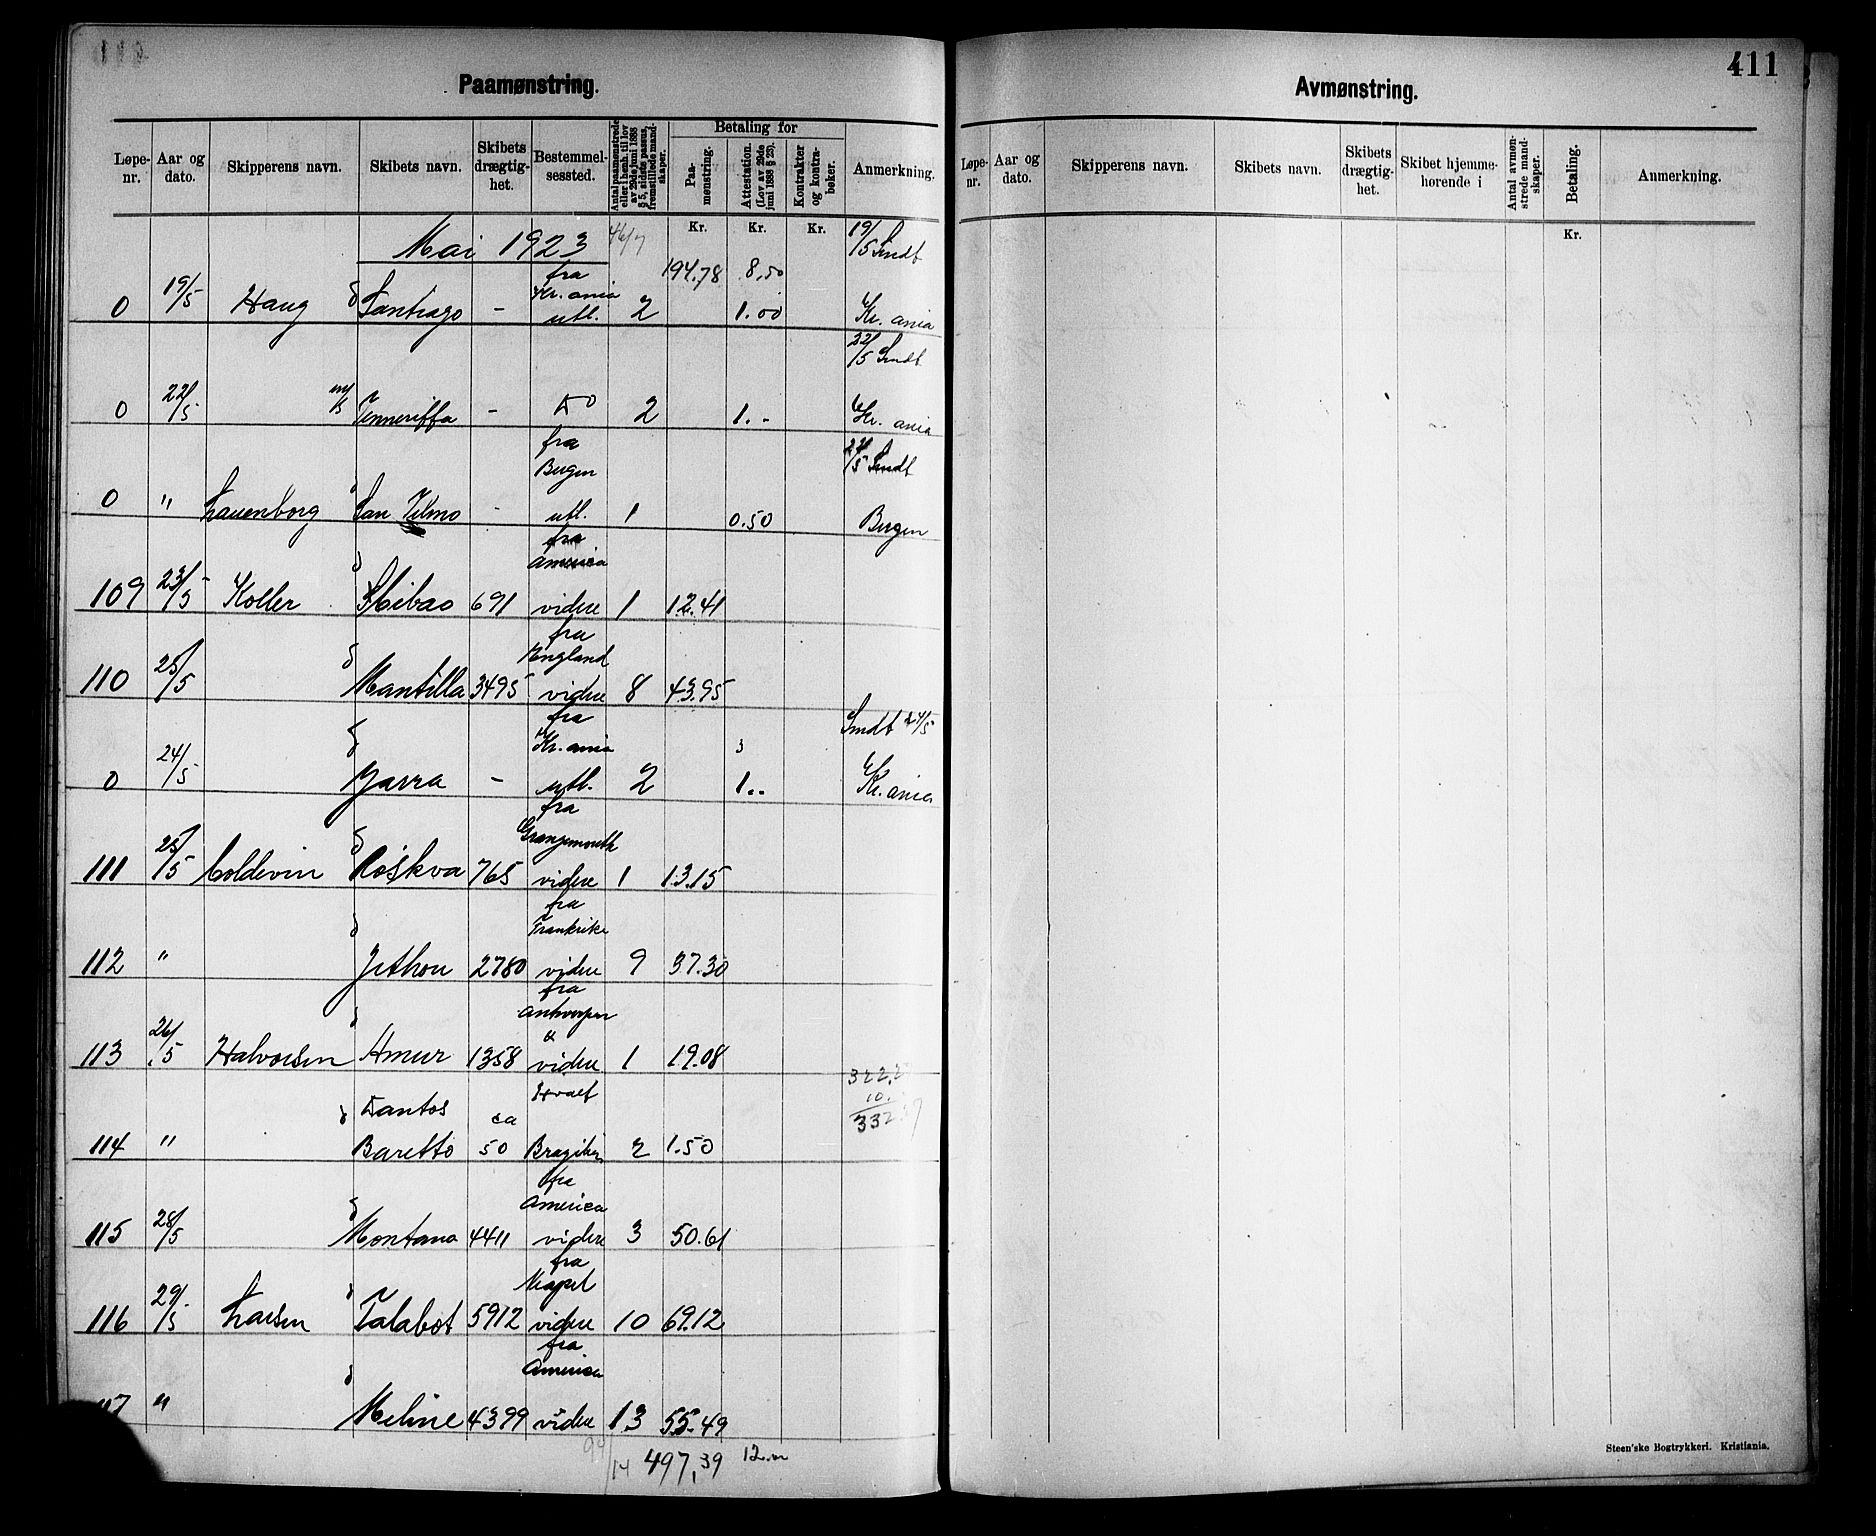 411
Paamønstring.
Løpe-nr. Aar og dato. Skipperens navn. Skibets navn. Skibets drægtighet. Bestemmelsessted. Antal paamønstrede eller i henh. til lov av 29de juni 1888 § 5, sidste passus, fremstillede mandskaper. Betaling for Paamønstring. Attestation. (Lov av 29de juni 1888 § 25). Kontrakter og kontrabøker. Anmerkning.
Kr. Kr. Kr.
Mai 1923 46/7 194,78 8,50 19/5 Smdt
fra
Kr. ania
0 19/5 Haug Santiago - utl. 2 1.00 Kr. ania
22/5 Smdt
0 22/5 m/s Tenneriffa - do 2 1.- Kr. ania
fra 22/5 Smdt
Bergen
0 " Lauenborg San Telmo - utl. 1 0.50 Bergen
fra
America
109 23/5 Koller Skibao 691 videre 1 12.41
fra
England
110 25/5 Mantilla 3495 videre 8 43.95
fra Smdt 24/5
Kr. ania
0 24/5 Yarra - utl. 2 1.. Kr. ania
fra
Grangemouth
111 25/5 Coldevin Røskva 765 videre 1 13.15
fra
Frankrike
112 " Jethou 2780 videre 9 37.30
fra
Antwerpen
&
113 26/5 Halvorsen Amur 1358 videre 1 19.08
322,2
10.
332
Santos ca
114 " Baretto 50 Brazilien 2 1.50
fra
America
115 28/5 Montana 4411 videre 3 50.61
fra
Neapel
116 29/5 Larsen Talabot 5912 videre 10 69.12
fra
America
117 " Meline 4399 videre 13 55.49
497,39 12.00
Avmønstring.
Løpe-nr. Aar og dato. Skipperens navn. Skibets navn. Skibets drægtighet. Skibet hjemmehørende i Antal avmønstrede mandskaper. Betaling. Anmerkning.
Kr.
Steen'ske Bogtrykkeri. Kristiania.